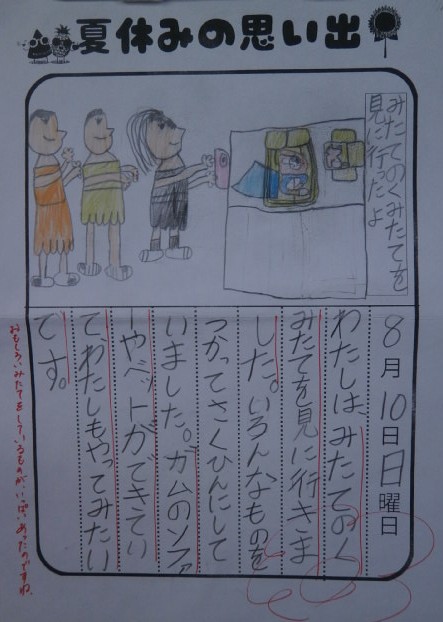 夏休みの思い出
みたてのくみたてを
見に行ったよ
8月10日日曜日
わたしは、みたてのく
みたてを見に行きま
した。いろんなものを
つかってさくひんにして
いました。ガムのソファ
ーやベットができてい
て、わたしもやってみたい
です。
おもしろいみたてをしているものが、いっぱいあったのですね。